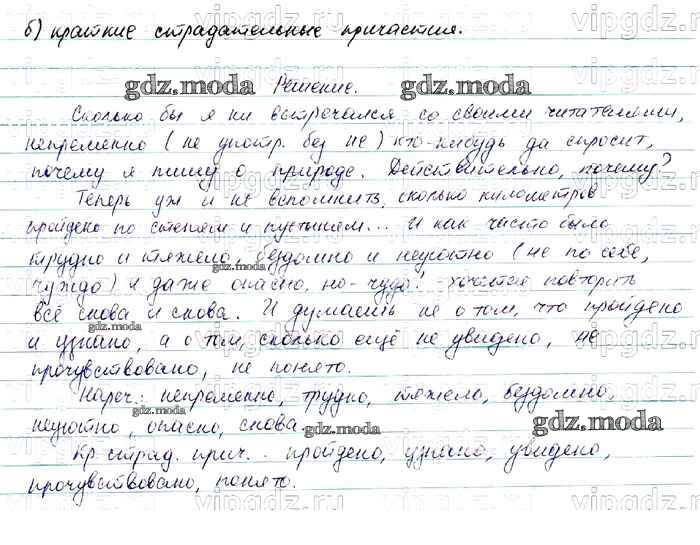 б) краткие страдательные причастия.
Решение.
Сколько бы я ни встречался со своими читателями,
непременно (не употр. без не) кто-нибудь да спросит,
почему я пишу о природе. Действительно, почему?
Теперь уж и не вспомнить, сколько километров
пройдено по степям и пустыням... И как часто было
трудно и тяжело, бездомно и неуютно (не по себе,
чуждо) и даже опасно, но - чудо! - хочется повторить
всё снова и снова. И думаешь не о том, что пройдено
и узнано, а о том, сколько ещё не увидено, не
прочувствовано, не понято.
Нареч.: непременно, трудно, тяжело, бездомно,
неуютно, опасно, снова.
Кр. страд. прич. - пройдено, узнано, увидено,
прочувствовано, понято.